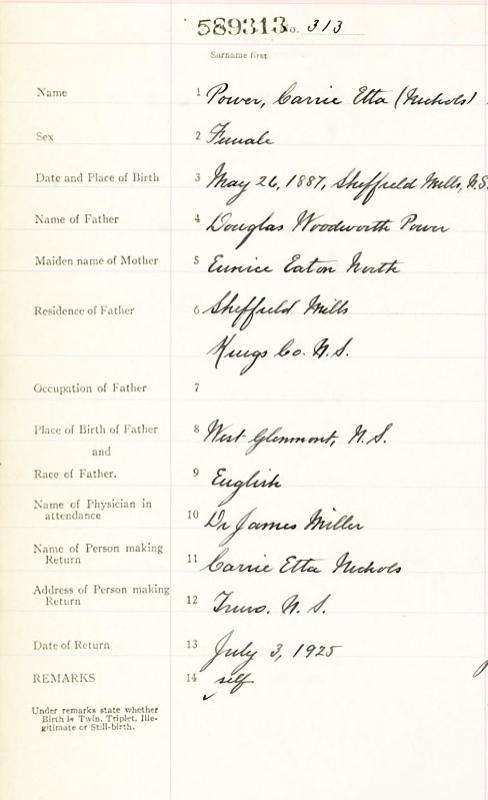 589313 No. 313
Surname first
Name 1 Power, Carrie Etta (Nichols)
Sex 2 Female
Date and Place of Birth 3 May 26, 1887, Sheffield Mills, N.S.
Name of Father 4 Douglas Woodworth Power
Maiden name of Mother 5 Eunice Eaton North
Residence of Father 6 Sheffield Mills
Kings Co. N.S.
Occupation of Father 7
Place of Birth of Father 8 West Glenmont, N.S.
and
Race of Father. 9 English
Name of Physician in
attendance 10 Dr James Miller
Name of Person making
Return 11 Carrie Etta Nichols
Address of Person making
Return 12 Truro. N.S.
Date of Return 13 July 3, 1925
REMARKS 14 self
Under remarks state whether
Birth is Twin, Triplet, Ille-
gitimate or Still-birth.